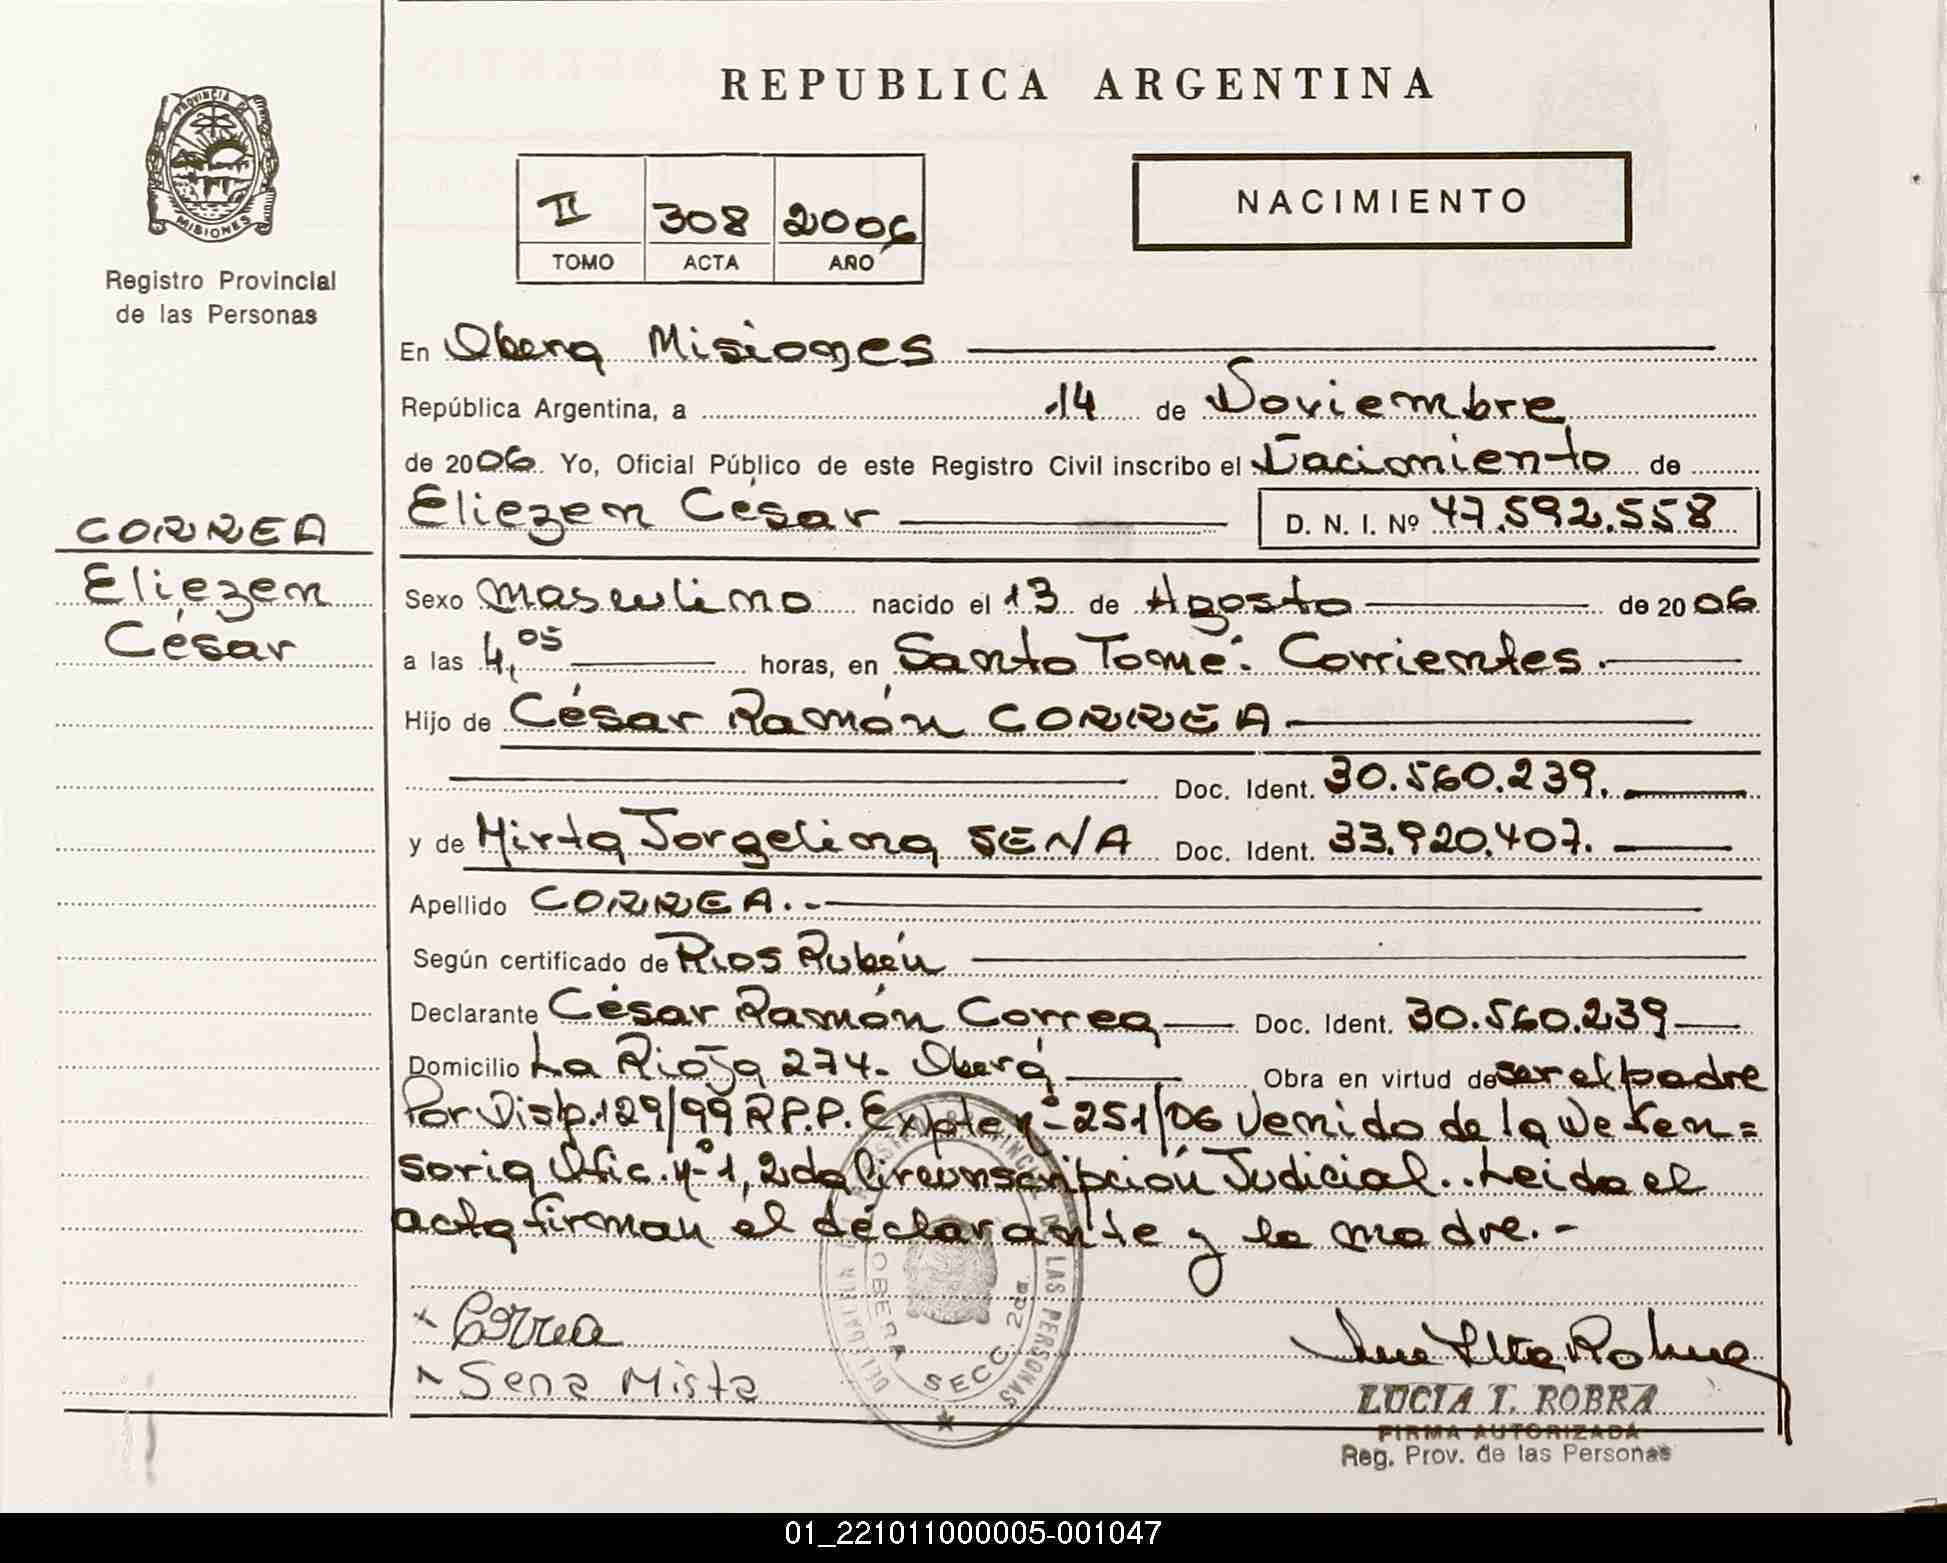 REPUBLICA ARGENTINA
PROVINCIA DE
MISIONES
Registro Provincial
de las Personas
II 308 2006
TOMO ACTA AÑO
NACIMIENTO
En Obera Misiones
República Argentina, a 14 de Noviembre
de 2006. Yo, Oficial Público de este Registro Civil inscribo el Nacimiento de
Eliezer César D. N. I. Nº 47.592.558
CORREA
Eliezer
César
Sexo masculino nacido el 13 de Agosto de 2006
a las 4,05 horas, en Santo Tomé. Corrientes.
Hijo de César Ramón CORREA
Doc. Ident. 30.560.239.
y de Mirta Jorgelina SENA Doc. Ident. 33.920.407.
Apellido CORREA.-
Según certificado de Rios Rubén
Declarante César Ramón Correa Doc. Ident. 30.560.239
Domicilio La Rioja 274. Oberá Obra en virtud de ser el padre
Por Disp. 129/99 R.P.P. Expte nº 251/06 Venido de la Defen=
soria Ofic. nº 1, 2da Circunscripción Judicial.. Leida el
acta firman el declarante y la madre.-
x Correa
x Sena Mirta
OBERA SECC. 2da.
DE LAS PERSONAS
LUCIA I. ROBRA
FIRMA AUTORIZADA
Reg. Prov. de las Personas
01_221011000005-001047